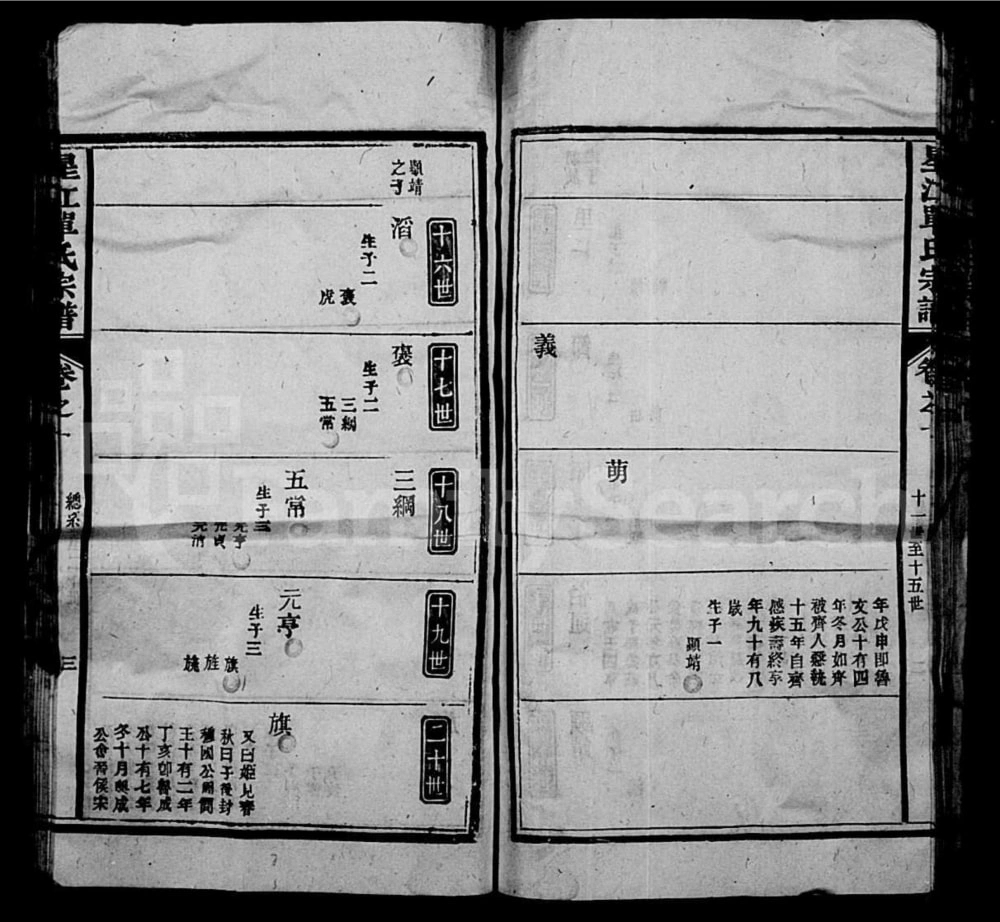 星江單氏宗譜
卷之一
十一世至十五世
二
義
萌
年戊申即魯
文公十有四
年冬月如齊
被齊人懸執
十五年自齊
感疾壽終享
年九十有八
歲
生子一
顯靖
十六世
顯靖
之子
滔
生子二
褒
虎
十七世
褒
生子二
三綱
五常
十八世
三綱
五常
生子三
元亨
元貞
十九世
元亨
生子三
旗
旌
二十世
旗
又曰姬見春
秋曰子後封
種國公周簡
王十有二年
丁亥即魯成
公十有七年
冬十月與成
公會晉侯宋
星江單氏宗譜
卷之一
總系
三